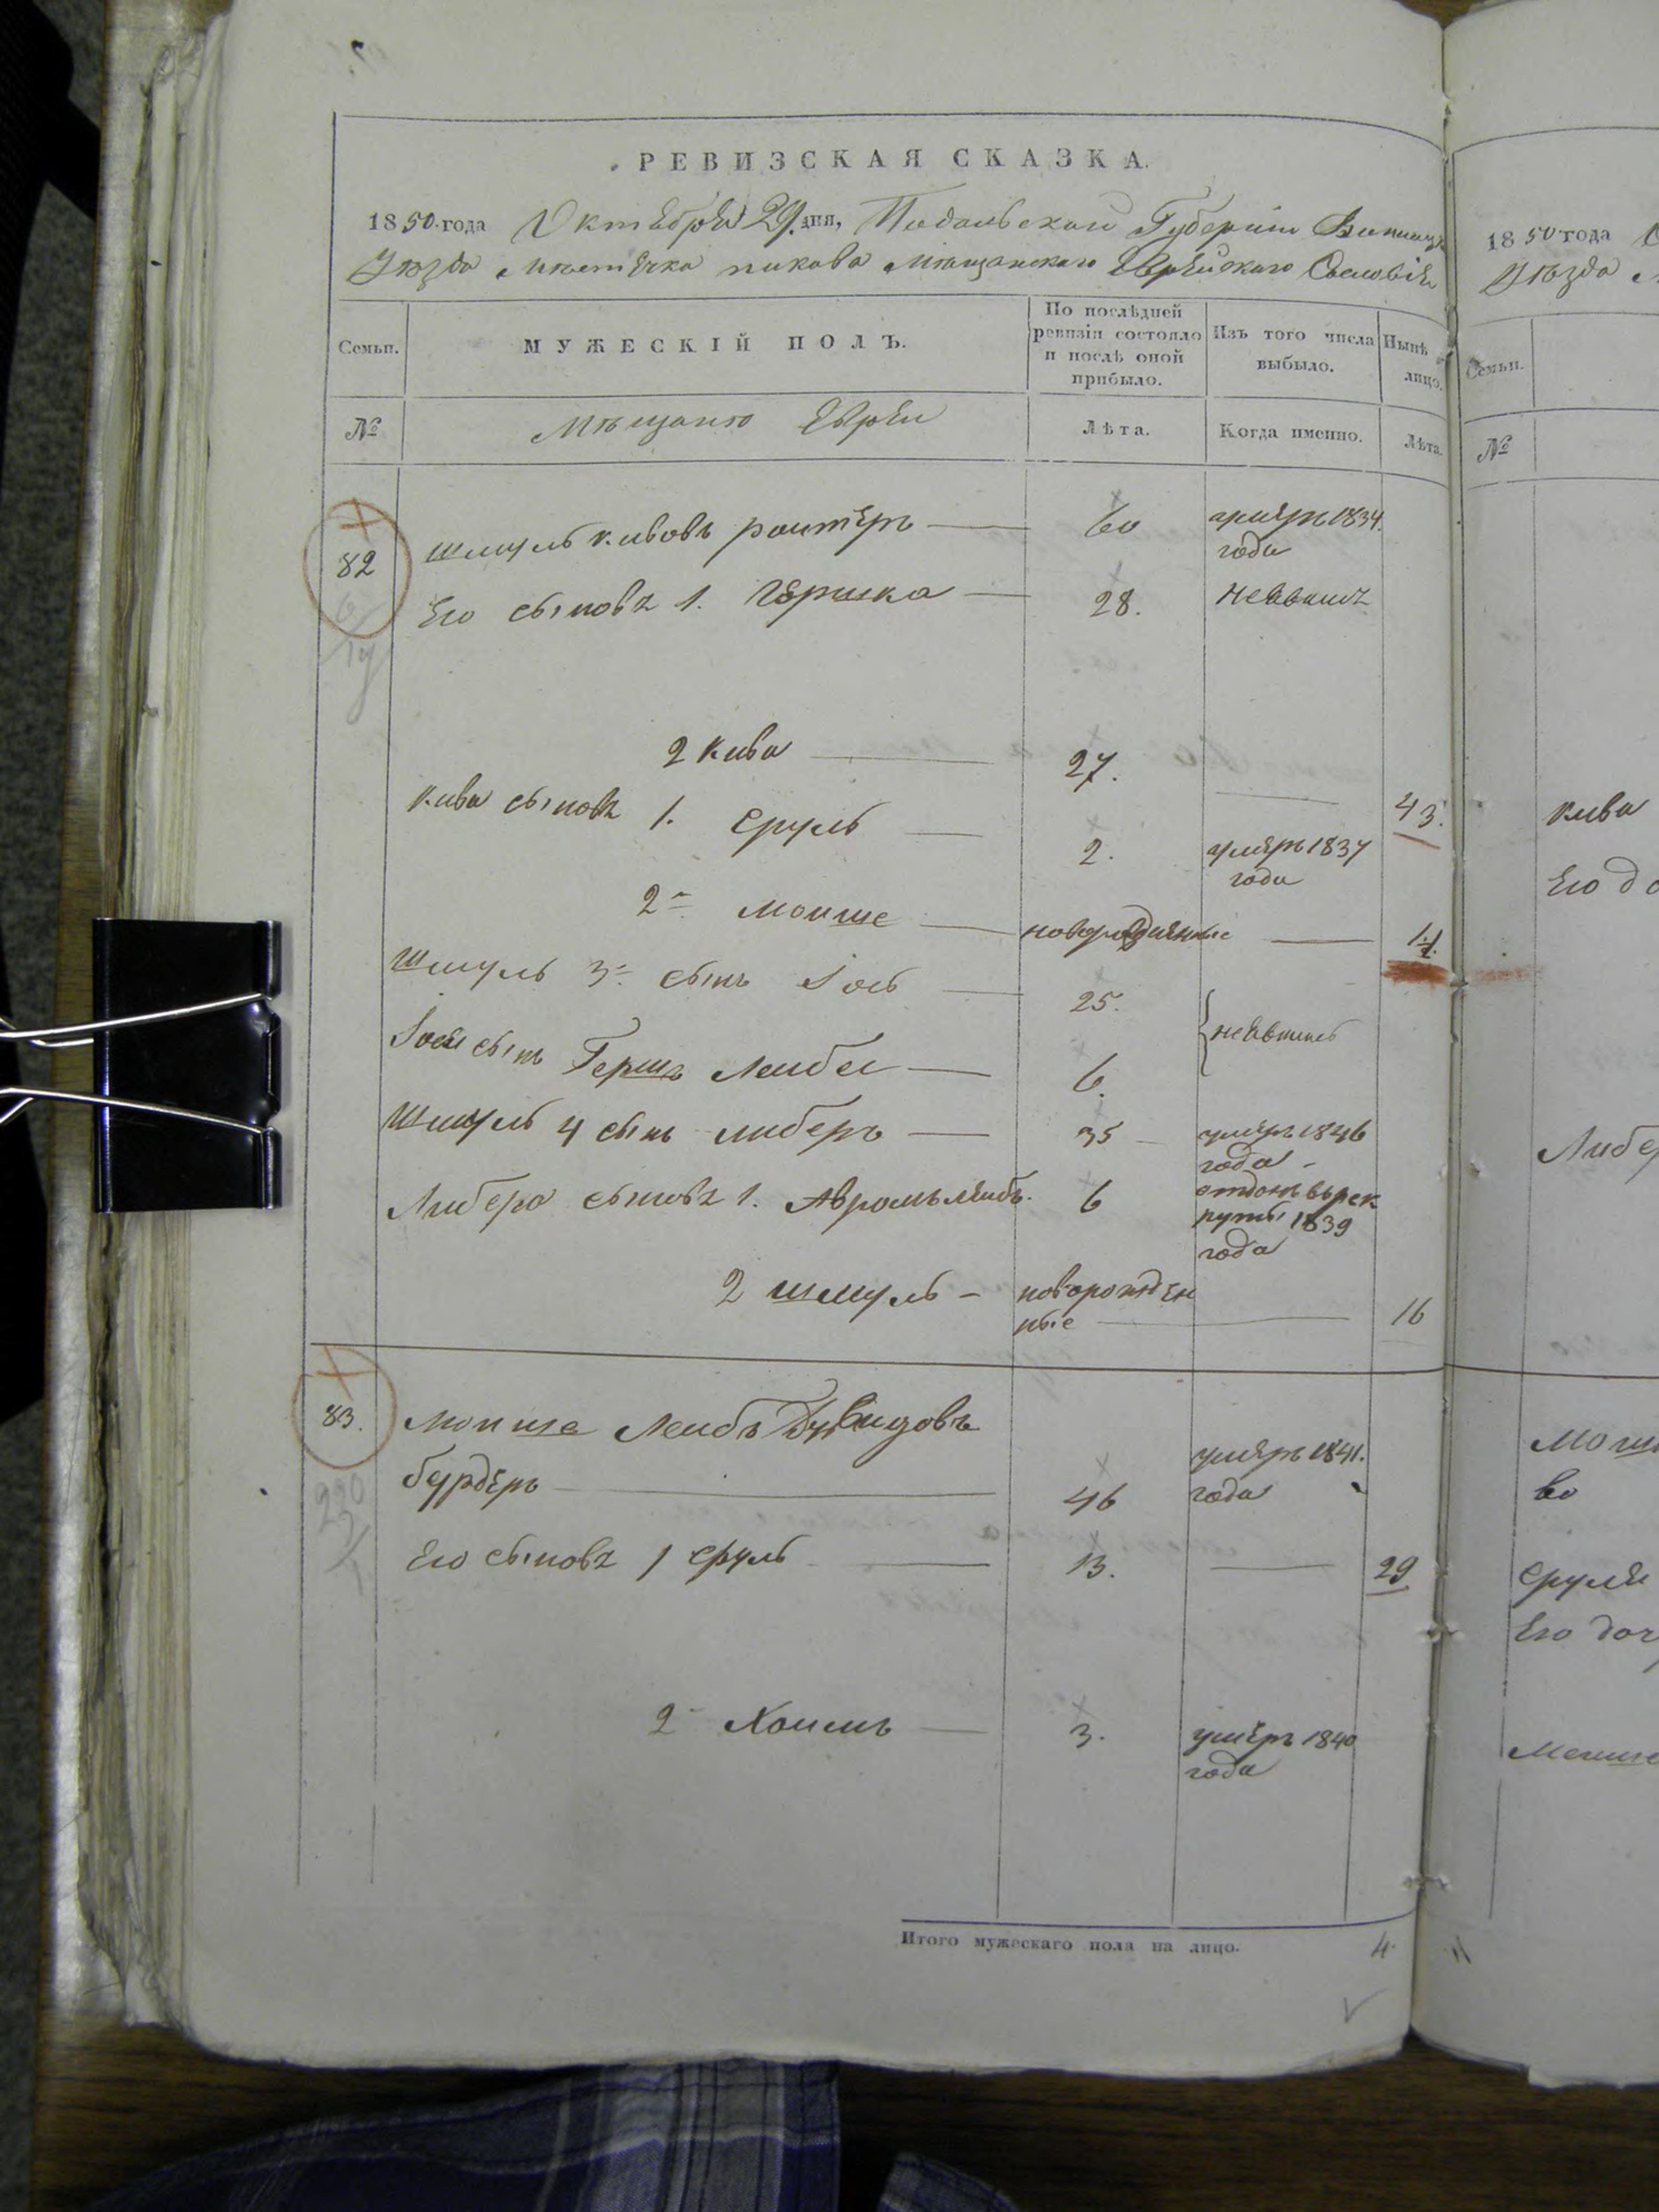 РЕВИЗСКАЯ СКАЗКА.
1850 года Октебря 29 дня, Подольской Губернии Винниц
Уезда Местечка пикова Мещанского Еврейского Сословия
Семьи. МУЖЕСКІЙ ПОЛЪ. По послѣдней ревизіи состояло и послѣ оной прибыло. Изъ того числа выбыло. Нынѣ лицо.
№ Мещане Евреи Лѣта. Когда именно. Лѣта.
82 Шмуль Кивовъ роитеръ 60 умеръ 1834 года
Его сыновя 1. Гершка 28. неявился
2 Кива 27. 43.
Кива сыновя 1. Сруль 2. умеръ 1837 года
2 Моише новорожденные
Шмуль 3 сынъ Іось 25.
Іося сынъ Гершъ Леибе 6. неявились
Шмуль 4 сынъ либеръ 35 умеръ 1846 года
Либера сыновя 1. Авромъ леибъ. 6 отдонъ в рекруты 1839 года
2 шмуль новорожденные 16
83. Моише Леибъ Дувидовъ
бурдеръ 46 умеръ 1841. года
Его сыновя 1 Сруль 13. 29
2 Хаимъ 3. умеръ 1840 года
Итого мужескаго пола на лицо. 4.
1850 года
Уезда
Семьи.
№
Кива
Его до
Либер
Мош
во
Сруля
Его доч
Меише